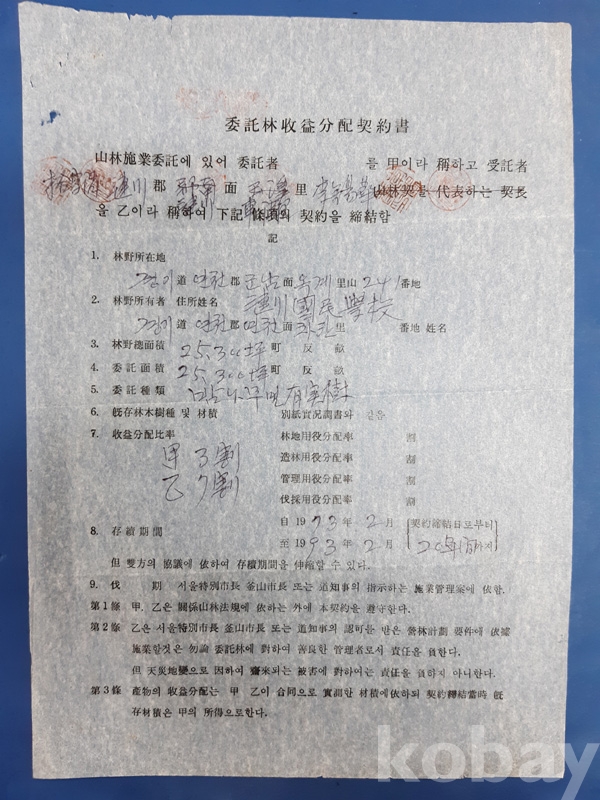 委託林收益分配契約書
山林施業委託에 있어 委託者 를 甲이라 稱하고 受託者
漣川 郡 郡南 面 里 山林契를 代表하는 契長
을 乙이라 稱하여 下記 條項의 契約을 締結함
記
1. 林野所在地
경기 道 연천 郡 군남 面 옥계 里 山 241 番地
2. 林野所有者 住所姓名 漣川國民學校
경기 道 연천 郡 연천 面 里 番地 姓名
3. 林野總面積 25,300坪 町 反 畝
4. 委託面積 25,300坪 町 反 畝
5. 委託種類 밤나무 및 有実樹
6. 旣存林木樹種 및 材積 別紙實況調書와 같음
7. 收益分配比率 林地用役分配率 割
甲 3割 造林用役分配率 割
乙 7割 管理用役分配率 割
伐採用役分配率 割
8. 存續期間 自 1973年 2月 (契約締結日로부터
至 1993年 2月 20年間까지)
但 雙方의 協議에 依하여 存續期間을 伸縮할 수 있다.
9. 伐期 서울特別市長 釜山市長 또는 道知事의 指示하는 施業管理案에 依함.
第1條 甲. 乙은 關係山林法規에 依하는 外에 本契約을 遵守한다.
第2條 乙은 서울特別市長 釜山市長 또는 道知事의 認可를 받은 營林計劃 要件에 依據
施業할것은 勿論 委託林에 對하여 善良한 管理者로서 責任을 負한다.
但 天災地變으로 因하여 齎來되는 被害에 對하여는 責任을 負하지 아니한다.
第3條 產物의 收益分配는 甲 乙이 合同으로 實測한 材積에依하되 契約締結當時 旣
存材積은 甲의 所得으로한다.
kobay